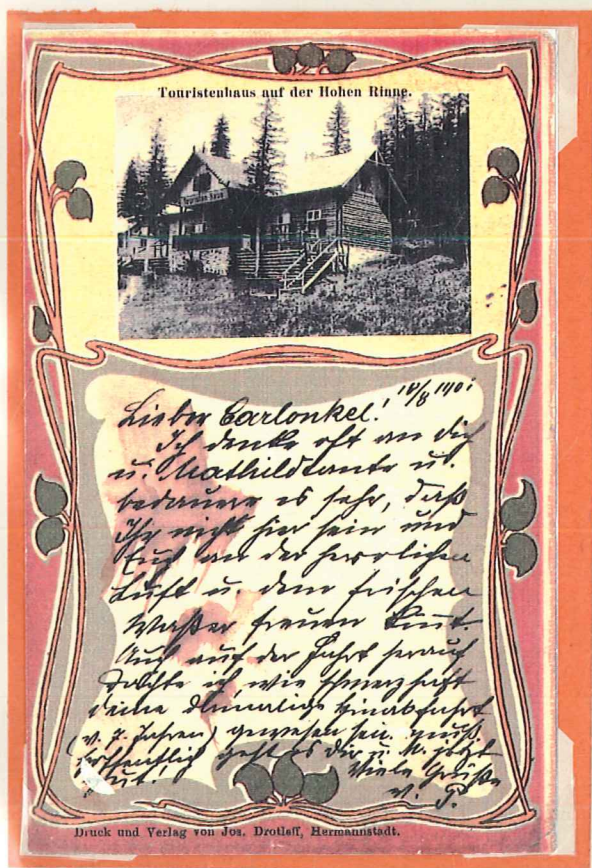 Touristenhaus auf der Hohen Rinne.
Touristen Haus
Lieber Carlonkel!
Ich denke oft an dich
u. Mathildtante u.
bedauere es sehr, daß
Ihr nicht hier sein und
Euch an der herrlichen
Luft u. dem frischen
Waßer freuen könnt.
Auch auf der Fahrt herauf
dachte ich, wie schmerzhaft
deine damalige Hinabfahrt
(v. 7. Jahren) gewesen sein muß.
Hoffentlich geht es dir u. M. jetzt
gut! Viele Grüße
v. P.
Druck und Verlag von Jos. Drotleff, Hermannstadt.